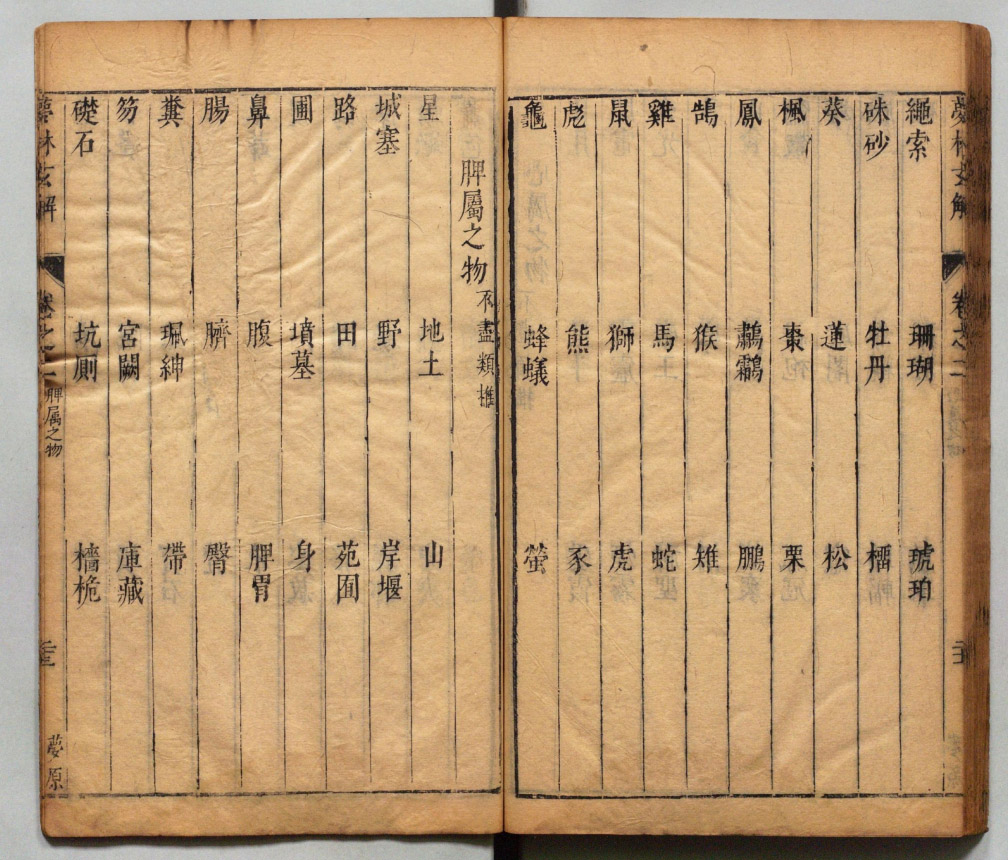 繩索 珊瑚 琥珀
硃砂 牡丹 橊
葵 蓮 松
楓 棗 栗
鳳 鸕鷀 鵬
鵠 猴 雉
雞 馬 蛇
鼠 獅 虎
彪 熊 豕
龜 蜂蟻 螢
脾屬之物 不盡類推
星 地土 山
城塞 野 岸堰
路 田 苑囿
圃 墳墓 身
鼻 腹 脾胃
腸 臍 臀
糞 珮紳 帶
笏 宮闕 庫藏
礎石 坑厠 檣桅
夢林玄解 卷之二 脾屬之物 夢原